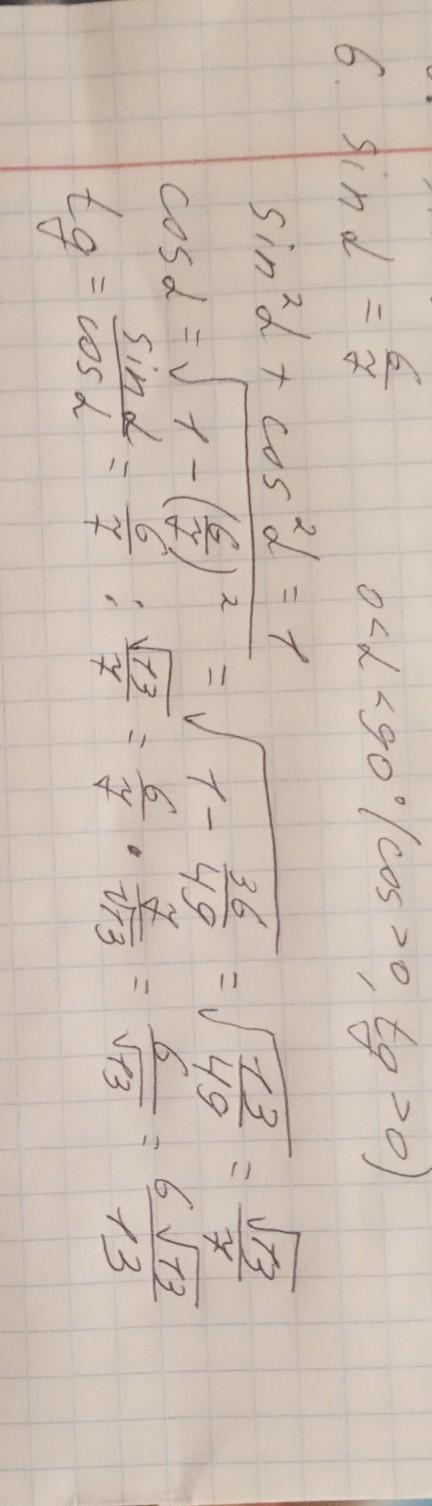 6. sin α = 6/7   0 < α < 90° (cos > 0, tg > 0)
sin²α + cos²α = 1
cos α = √(1 - (6/7)²) = √(1 - 36/49) = √(13/49) = √13/7
tg = sin α/cos α = 6/7 : √13/7 = 6/7 · 7/√13 = 6/√13 = 6√13/13